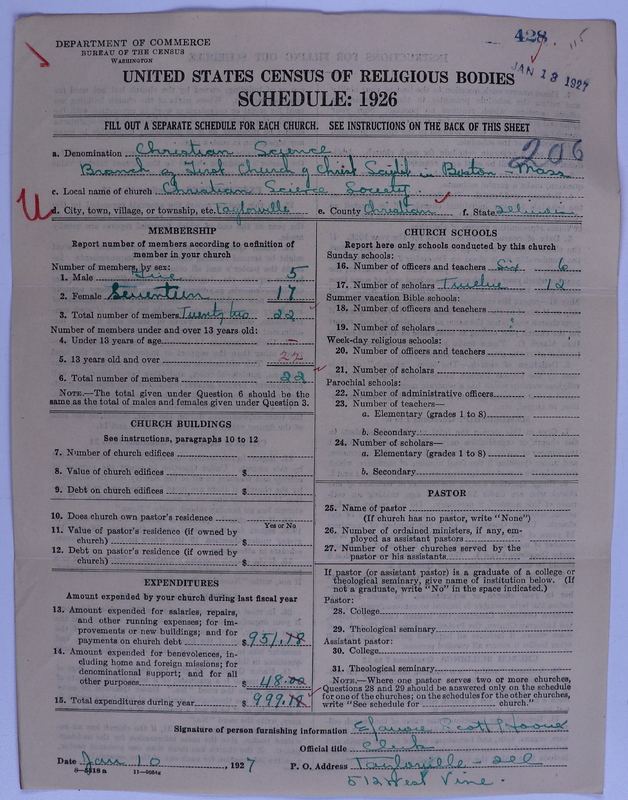 DEPARTMENT OF COMMERCE
BUREAU OF THE CENSUS
WASHINGTON
428
115
JAN 13 1927
UNITED STATES CENSUS OF RELIGIOUS BODIES
SCHEDULE: 1926
FILL OUT A SEPARATE SCHEDULE FOR EACH CHURCH. SEE INSTRUCTIONS ON THE BACK OF THIS SHEET
206
a. Denomination Christian Science
Branch of First Church of Christ Scientist in Boston - Mass
c. Local name of church Christian Science Society.
d. City, town, village, or township, etc. Taylorville e. County Christian f. State Illinois
MEMBERSHIP
Report number of members according to definition of
member in your church
Number of members, by sex:
1. Male Five 5
2. Female Seventeen 17
3. Total number of members Twenty two 22
Number of members under and over 13 years old:
4. Under 13 years of age —
5. 13 years old and over 22
6. Total number of members 22
NOTE.—The total given under Question 6 should be the
same as the total of males and females given under Question 3.
CHURCH BUILDINGS
See instructions, paragraphs 10 to 12
7. Number of church edifices
8. Value of church edifices $
9. Debt on church edifices $
10. Does church own pastor's residence
Yes or No
11. Value of pastor's residence (if owned by
church) $
12. Debt on pastor's residence (if owned by
church) $
EXPENDITURES
Amount expended by your church during last fiscal year
13. Amount expended for salaries, repairs,
and other running expenses; for im-
provements or new buildings; and for
payments on church debt $ 951.18
14. Amount expended for benevolences, in-
cluding home and foreign missions; for
denominational support; and for all
other purposes 48.00
15. Total expenditures during year $ 999.18
CHURCH SCHOOLS
Report here only schools conducted by this church
Sunday schools:
16. Number of officers and teachers Six 6
17. Number of scholars Twelve 12
Summer vacation Bible schools:
18. Number of officers and teachers
19. Number of scholars
Week-day religious schools:
20. Number of officers and teachers
21. Number of scholars
Parochial schools:
22. Number of administrative officers
23. Number of teachers—
a. Elementary (grades 1 to 8)
b. Secondary
24. Number of scholars—
a. Elementary (grades 1 to 8)
b. Secondary
PASTOR
25. Name of pastor
(If church has no pastor, write "None")
26. Number of ordained ministers, if any, em-
ployed as assistant pastors
27. Number of other churches served by the
pastor or his assistants
If pastor (or assistant pastor) is a graduate of a college or
theological seminary, give name of institution below. (If
not a graduate, write "No" in the space indicated.)
Pastor:
28. College
29. Theological seminary
Assistant pastor:
30. College
31. Theological seminary
NOTE.—Where one pastor serves two or more churches,
Questions 28 and 29 should be answered only on the schedule
for one of the churches; on the schedules for the other churches,
write "See schedule for church."
Signature of person furnishing information Scott
Official title Clerk
Date Jan 10, 1927 P. O. Address Taylorville - Ill
512 West Vine.
8—5518 a 11—9051g